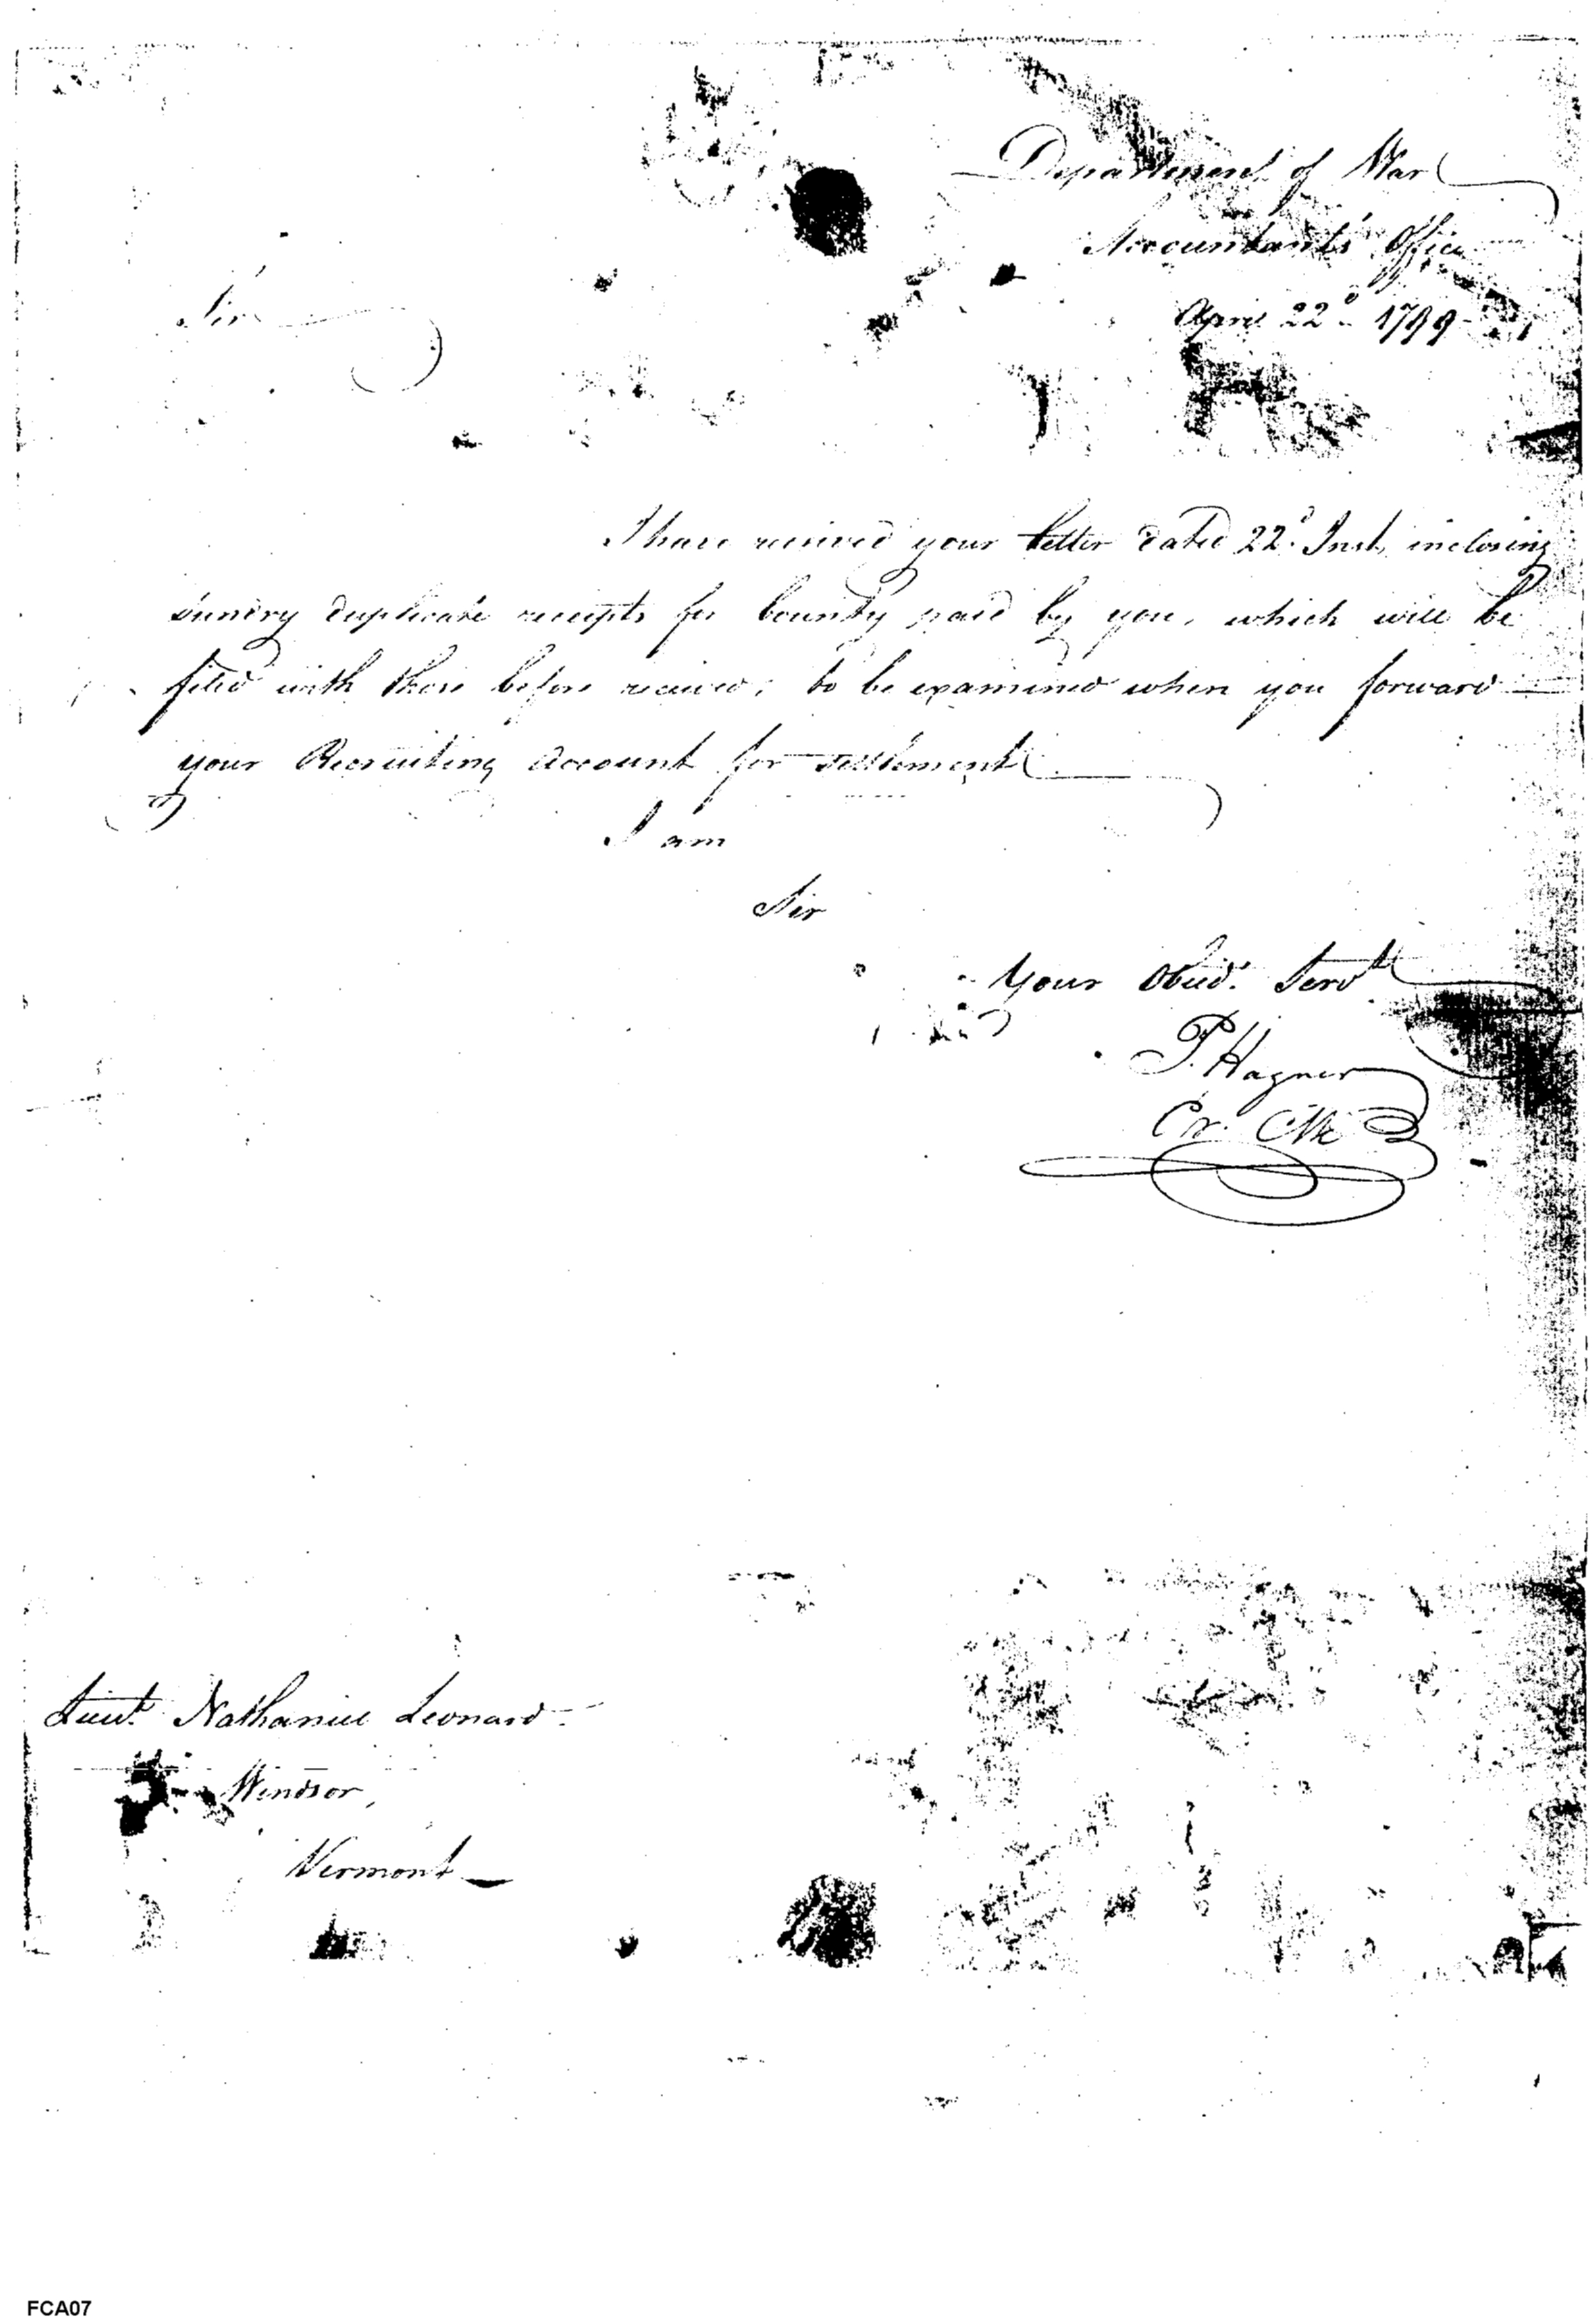 Department of War
Accountants Office
April 22d 1799
Sir
I have received your letter dated 22d Inst, inclosing
sundry duplicate receipts for bounty paid by you, which will be
filed with those before received; to be examined when you forward
your Recruiting Account for settlement
I am
Sir
Your Obed. Servt
P. Hagner
Lieut. Nathaniel Leonard
Windsor,
Vermont
FCA07